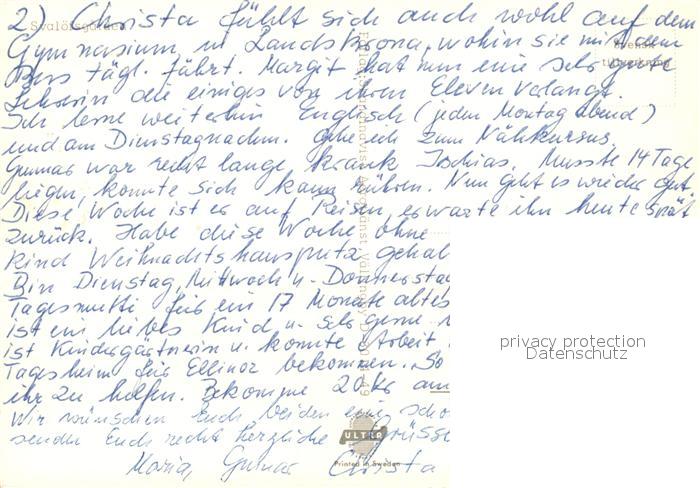 2) Christa fühlt sich auch wohl auf dem
Svalöfsgården
Gymnasium in Landskrona, wohin sie mit dem
Bus tägl. fährt. Margit hat nun eine sehr gute
Svensk
tillverkning
Lehrerin die einiges von ihren Eleven verlangt.
Ich lerne weiterhin Englisch (jeden Montag abend)
und am Dienstagnachm. gehe ich zum Nähkursus.
Gunnar war recht lange krank Ischias. Musste 14 Tage
liegen, konnte sich kaum rühren. Nun geht es wieder gut
Diese Woche ist er auf Reisen, erwarte ihn heute spät
zurück. Habe diese Woche ohne
Kind Weihnachtshausputz gehab
Bin Dienstag, Mittwoch u. Donnersta
Tagesmutti für ein 17 Monate altes
ist ein liebes Kind u. sehr gerne
ist Kindergärtnerin u. konnte Arbeit
Tagesheim für Ellinor bekommen. So
ihr zu helfen. Bekomme 20 Kr am
Wir wünschen Euch beiden eine schö
senden Euch recht herzliche Grüsse
Maria, Gunnar Christa
ULTRA
Printed in Sweden
privacy protection
Datenschutz